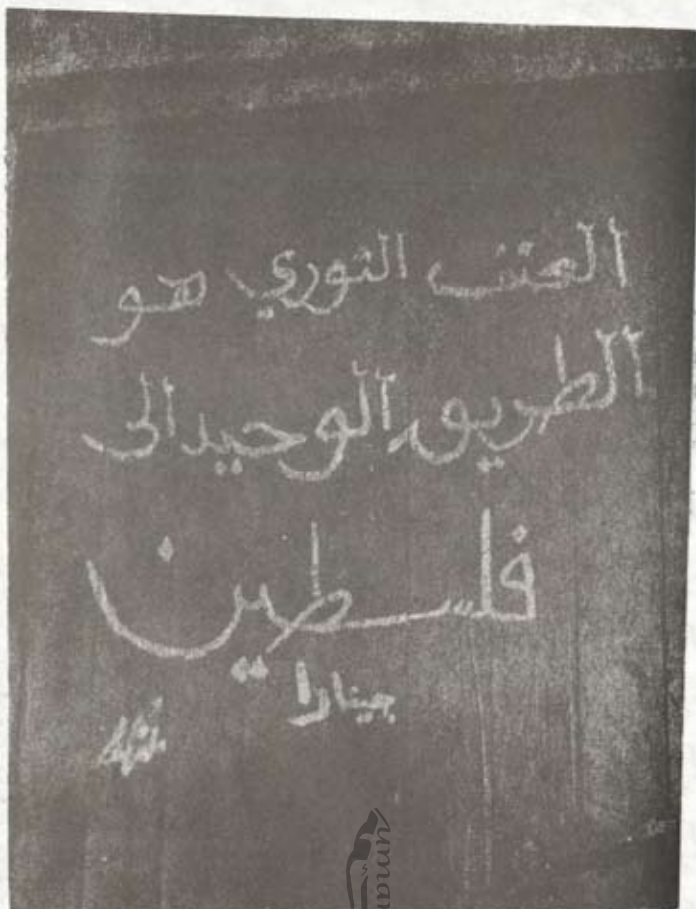 العنف الثوري هو
الطريق الوحيد الى
فلسطين
جيفارا